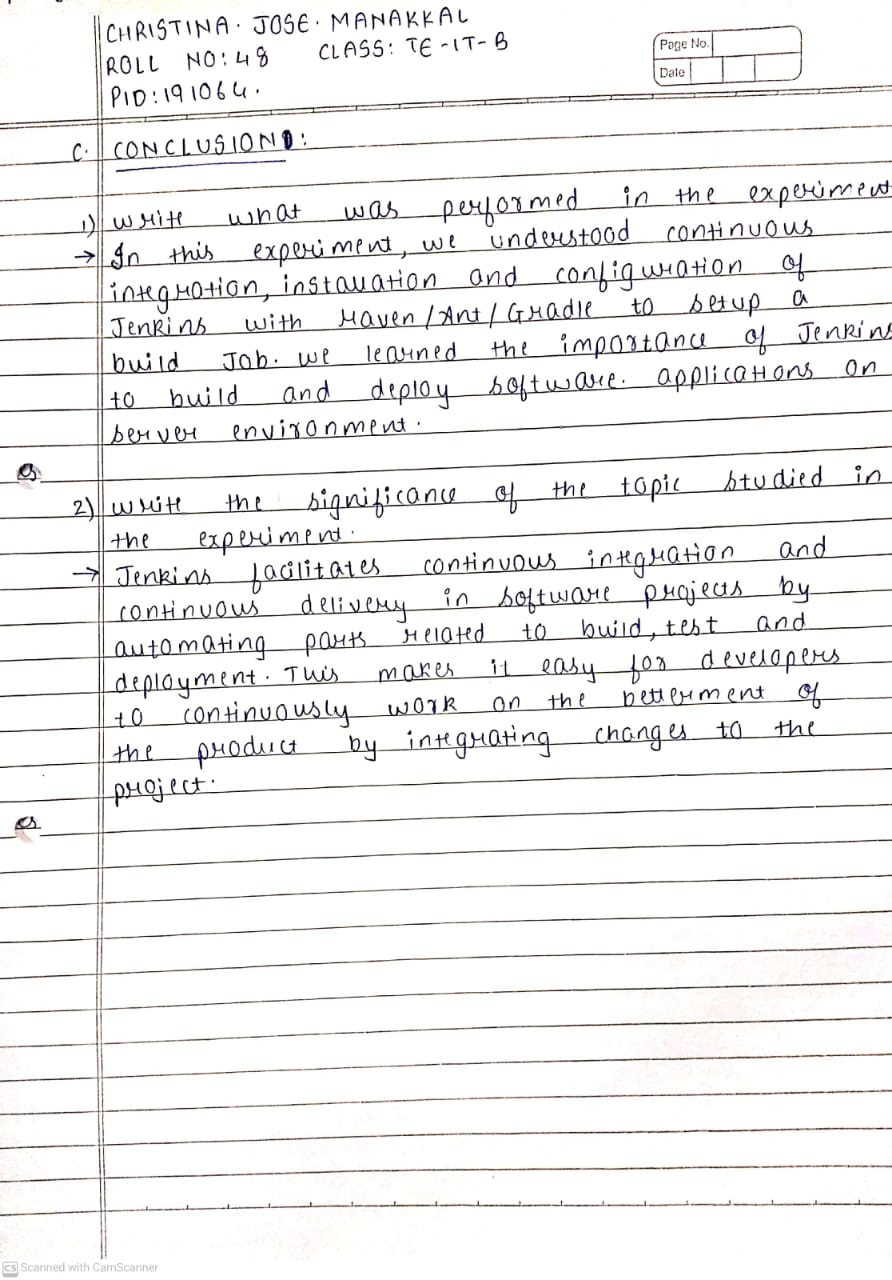 CHRISTINA. JOSE. MANAKKAL
ROLL NO: 48 CLASS: TE-IT-B
PID: 191064.
Page No.
Date
C. CONCLUSION:
1) Write what was performed in the experiment
→ In this experiment, we understood continuous
integration, installation and configuration of
Jenkins with Maven/Ant/Gradle to setup a
build Job. we learned the importance of Jenkins
to build and deploy software. applications on
server environment.
2) write the significance of the topic studied in
the experiment.
→ Jenkins facilitates continuous integration and
continuous delivery in software projects by
automating parts related to build, test and
deployment. This makes it easy for developers
to continuously work on the betterment of
the product by integrating changes to the
project.
CS Scanned with CamScanner